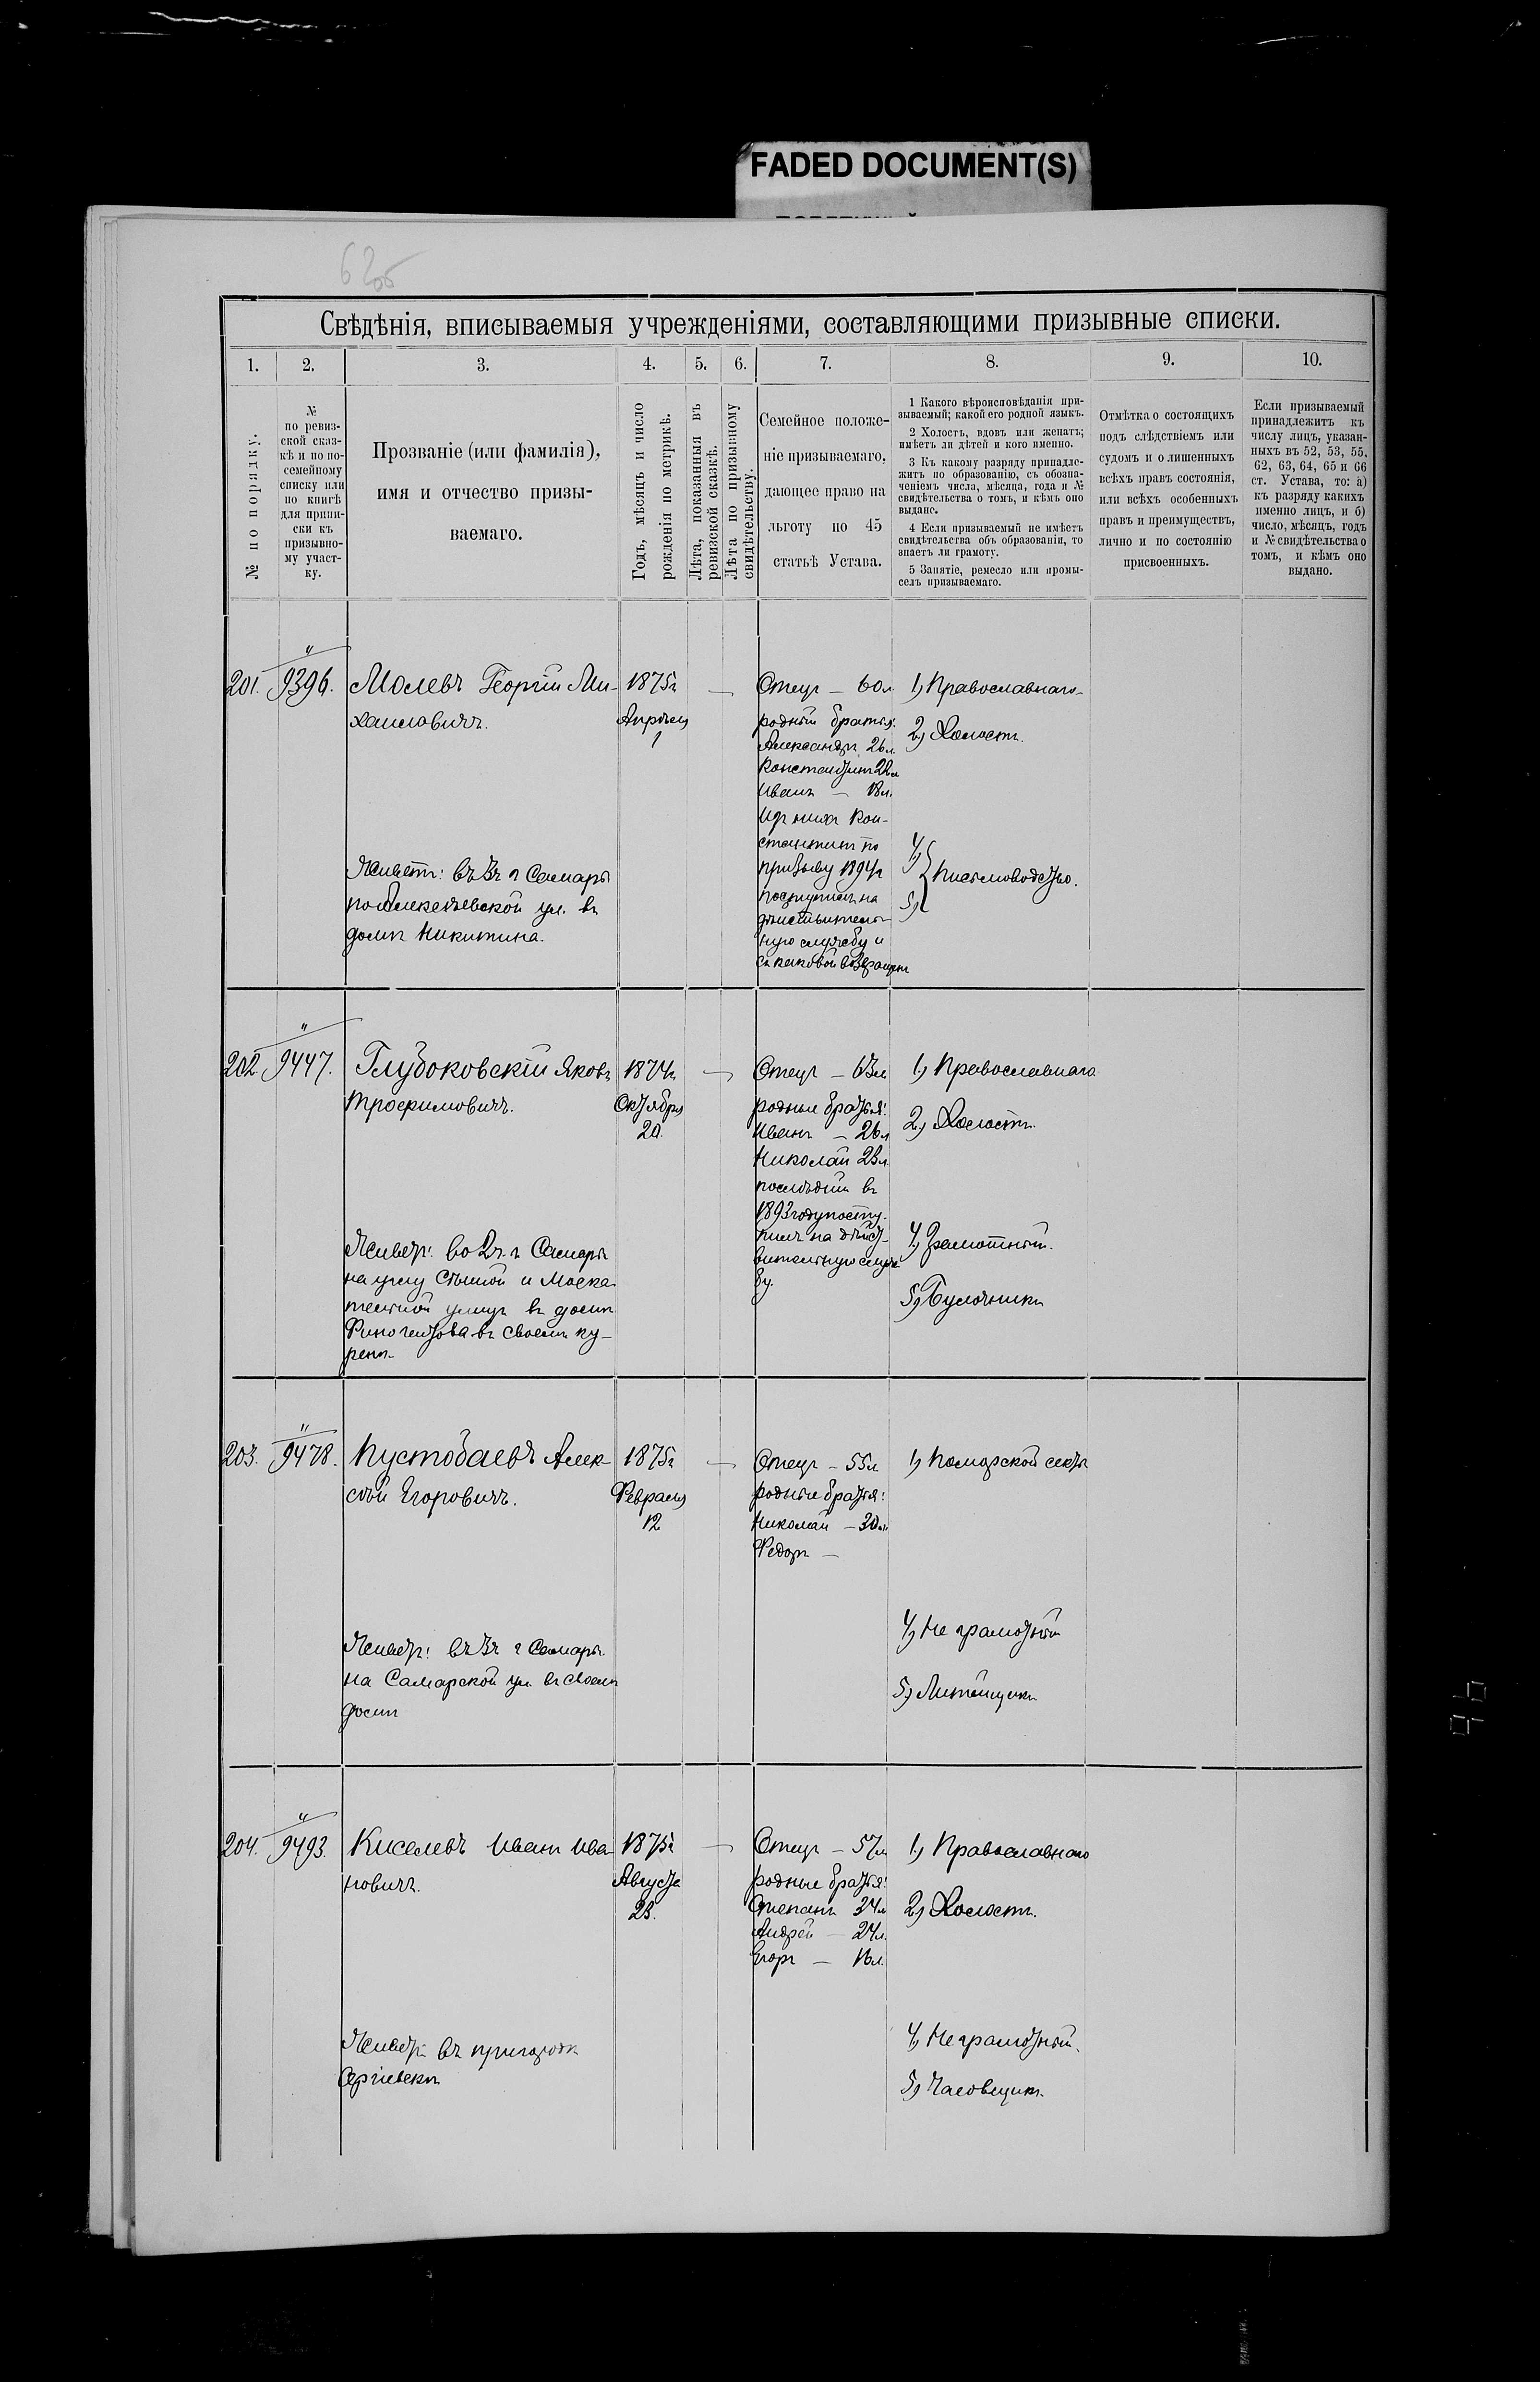 FADED DOCUMENT(S)
62об
Свѣдѣнія, вписываемыя учрежденіями, составляющими призывные списки.
1. 2. 3. 4. 5. 6. 7. 8. 9. 10.
№ по порядку.
№
по ревиз-
ской сказ-
кѣ и по по-
семейному
списку или
по книгѣ
для припи-
ски къ
призывно-
му участ-
ку.
Прозваніе (или фамилія),
имя и отчество призы-
ваемаго.
Годъ, мѣсяцъ и число
рожденія по метрикѣ.
Лѣта, показанныя въ
ревизской сказкѣ.
Лѣта по призывному
свидѣтельству.
Семейное положе-
ніе призываемаго,
дающее право на
льготу по 45
статьѣ Устава.
1 Какого вѣроисповѣданія при-
зываемый; какой его родной языкъ.
2 Холостъ, вдовъ или женатъ;
имѣетъ ли дѣтей и кого именно.
3 Къ какому разряду принадле-
житъ по образованію, съ обозна-
ченіемъ числа, мѣсяца, года и №
свидѣтельства о томъ, и кѣмъ оно
выдано.
4 Если призываемый не имѣетъ
свидѣтельства объ образованіи, то
знаетъ ли грамоту.
5 Занятіе, ремесло или промы-
селъ призываемаго.
Отмѣтка о состоящихъ
подъ слѣдствіемъ или
судомъ и о лишенныхъ
всѣхъ правъ состоянія,
или всѣхъ особенныхъ
правъ и преимуществъ,
лично и по состоянію
присвоенныхъ.
Если призываемый
принадлежитъ къ
числу лицъ, указан-
ныхъ въ 52, 53, 55,
62, 63, 64, 65 и 66
ст. Устава, то: а)
къ разряду какихъ
именно лицъ, и б)
число, мѣсяцъ, годъ
и № свидѣтельства о
томъ, и кѣмъ оно
выдано.
201. "
9396.
Молевъ Георгій Ми-
хаиловичъ.
Живетъ: въ 3ч г Самары
по Алексѣевской ул. въ
домѣ Никитина.
1875г
Апрѣля
1
—
Отецъ — 60л
родныи братья:
Александръ 26л.
Константинъ 22л
Иванъ — 18л.
Изъ нихъ Кон-
стантинъ по
призыву 1894г
поступилъ на
дѣйствитель-
ную службу и
съ каковой возвращенъ
1) Православнаго
2) Холостъ.
4)
5)
Письмоводство.
202. "
9447.
Глубоковскій Яковъ
Трофимовичъ.
Живетъ: во 2ч. г Самары
на углу Сѣнной и Моска-
тельной улицъ въ домѣ
Финогентова въ своемъ ку-
ренѣ.
1874г
Октября
20.
—
Отецъ — 63л
родные братья:
Иванъ — 26л
Николай 23л.
послѣдній въ
1893 году посту-
пилъ на дѣйст-
вительную служ
бу.
1) Православнаго
2) Холостъ.
4) Грамотный.
5) Булочникъ
203. "
9478.
Пустобаевъ Алек-
сѣй Егоровичъ.
Живетъ: въ 3ч г Самары
на Самарской ул. въ своемъ
домѣ
1875г
Февраля
12
—
Отецъ — 55л
родные братья:
Николай — 30л
Федоръ —
1) Поморской секты
4) Не грамотный
5) Литейщикъ
204. "
9493.
Киселевъ Иванъ Ива-
новичъ.
Живетъ: въ пригородѣ
Сергіевскѣ
1875г
Августа
23.
—
Отецъ — 57л
родные братья:
Степанъ 34л
Андрей — 24л.
Егоръ — 16л.
1) Православнаго
2) Холостъ.
4) Не грамотный.
5) Часовщикъ.
96